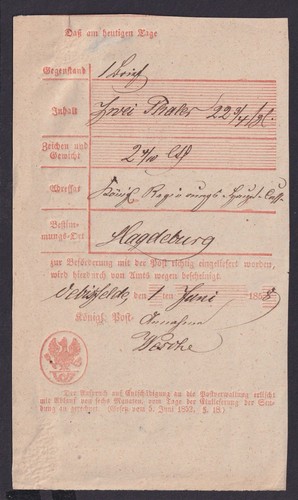 Daß am heutigen Tage
Gegenstand 1 Brief
Inhalt Zwei Thaler 22 3/4 Sgl.
Zeichen und Gewicht 2 4/10 Lth
Adressat Königl Regierungs-Haupt-Casse
Bestimmungs-Ort Magdeburg
zur Beförderung mit der Post richtig eingeliefert worden,
wird hierdurch von Amts wegen bescheinigt.
Oebisfelde den 1 ten Juni 1858
Königl. Post- Annahme
Der Anspruch auf Entschädigung an die Postverwaltung erlischt
mit Ablauf von sechs Monaten, vom Tage der Einlieferung der Sen-
dung an gerechnet. (Gesetz vom 5. Juni 1852. §. 18.)